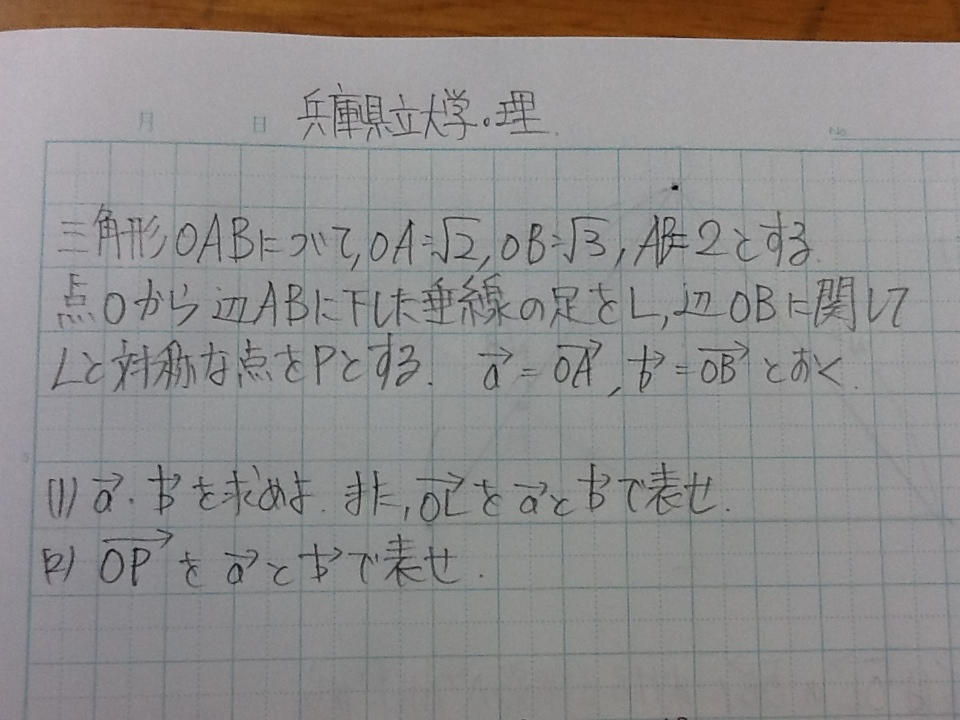 月 日 兵庫県立大学・理. No.
三角形OABについて, OA=√2, OB=√3, AB=2とする.
点Oから辺ABに下した垂線の足をL, 辺OBに関して
Lと対称な点をPとする. a⃗ = OA⃗, b⃗ = OB⃗ とおく.
(1) a⃗・b⃗ を求めよ. また, OL⃗ を a⃗ と b⃗ で表せ.
(2) OP⃗ を a⃗ と b⃗ で表せ.